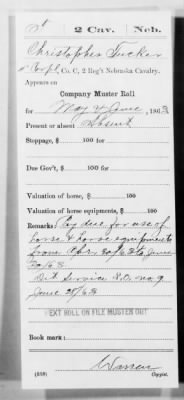 T | 2 Cav. | Neb.
Christopher Tucker
Corpl, Co. C, 2 Reg't Nebraska Cavalry.
Appears on
Company Muster Roll
for May & June, 1863
Present or absent Absent
Stoppage, $ 100 for
Due Gov't, $ 100 for
Valuation of horse, $ 100
Valuation of horse equipments, $ 100
Remarks: Pay due for use of
horse & horse equipments
from Apr. 30/63 to June
30/63
Det. Service S.O. No. 9
June 28/63
NEXT ROLL ON FILE MUSTER OUT
Book mark:
Warren
(359) Copyist.